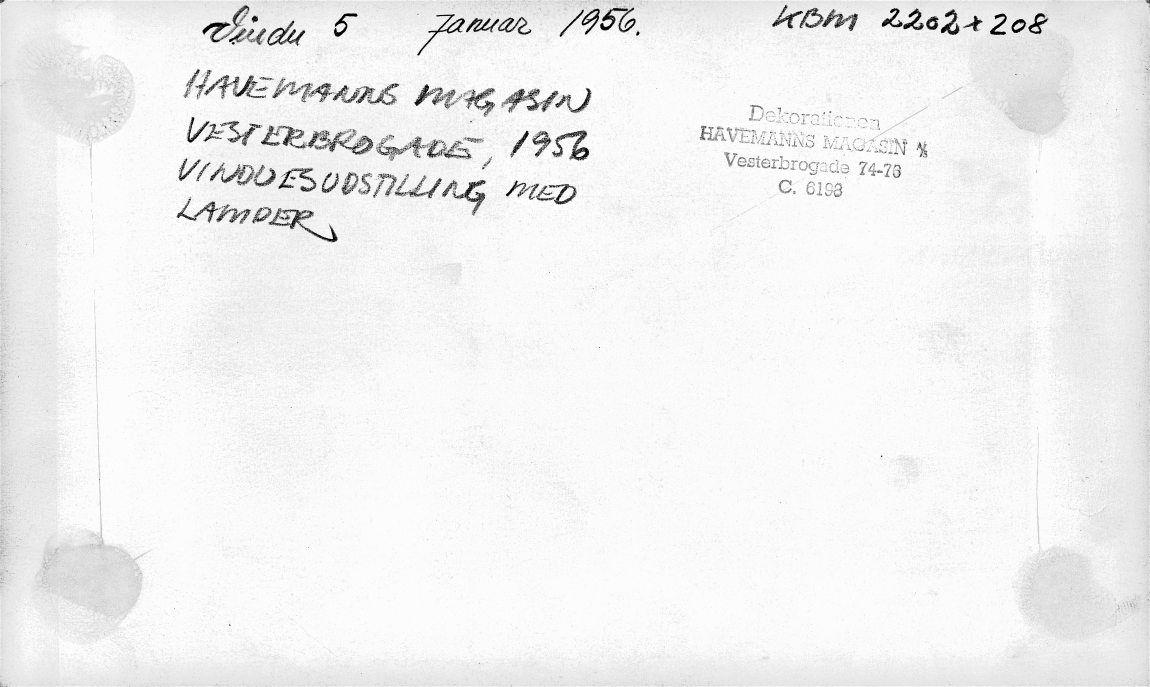 Vindu 5 Januar 1956.
KBM 2202+208
HAVEMANNS MAGASIN
VESTERBROGADE, 1956
VINDUESUDSTILLING MED
LAMPER
Dekorationen
HAVEMANNS MAGASIN A/S
Vesterbrogade 74-76
C. 6193